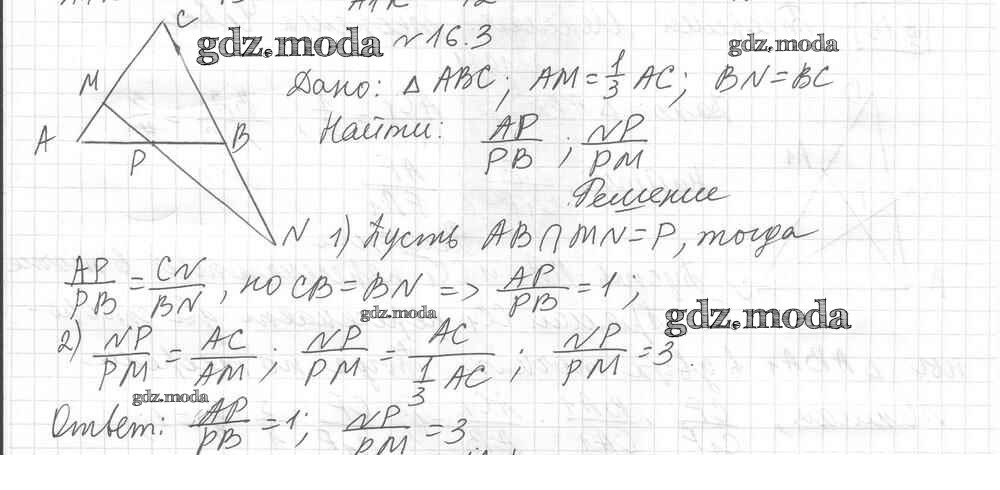 C
gdz.moda
№16.3
gdz.moda
M
Дано: △ ABC; AM = 1/3 AC; BN = BC
A
B
P
Найти: AP/PB ; NP/PM
Решение
N
1) Пусть AB ∩ MN = P, тогда
AP/PB = CN/BN, но CB = BN => AP/PB = 1;
gdz.moda
gdz.moda
2) NP/PM = AC/AM; NP/PM = AC/(1/3 AC); NP/PM = 3.
gdz.moda
Ответ: AP/PB = 1; NP/PM = 3